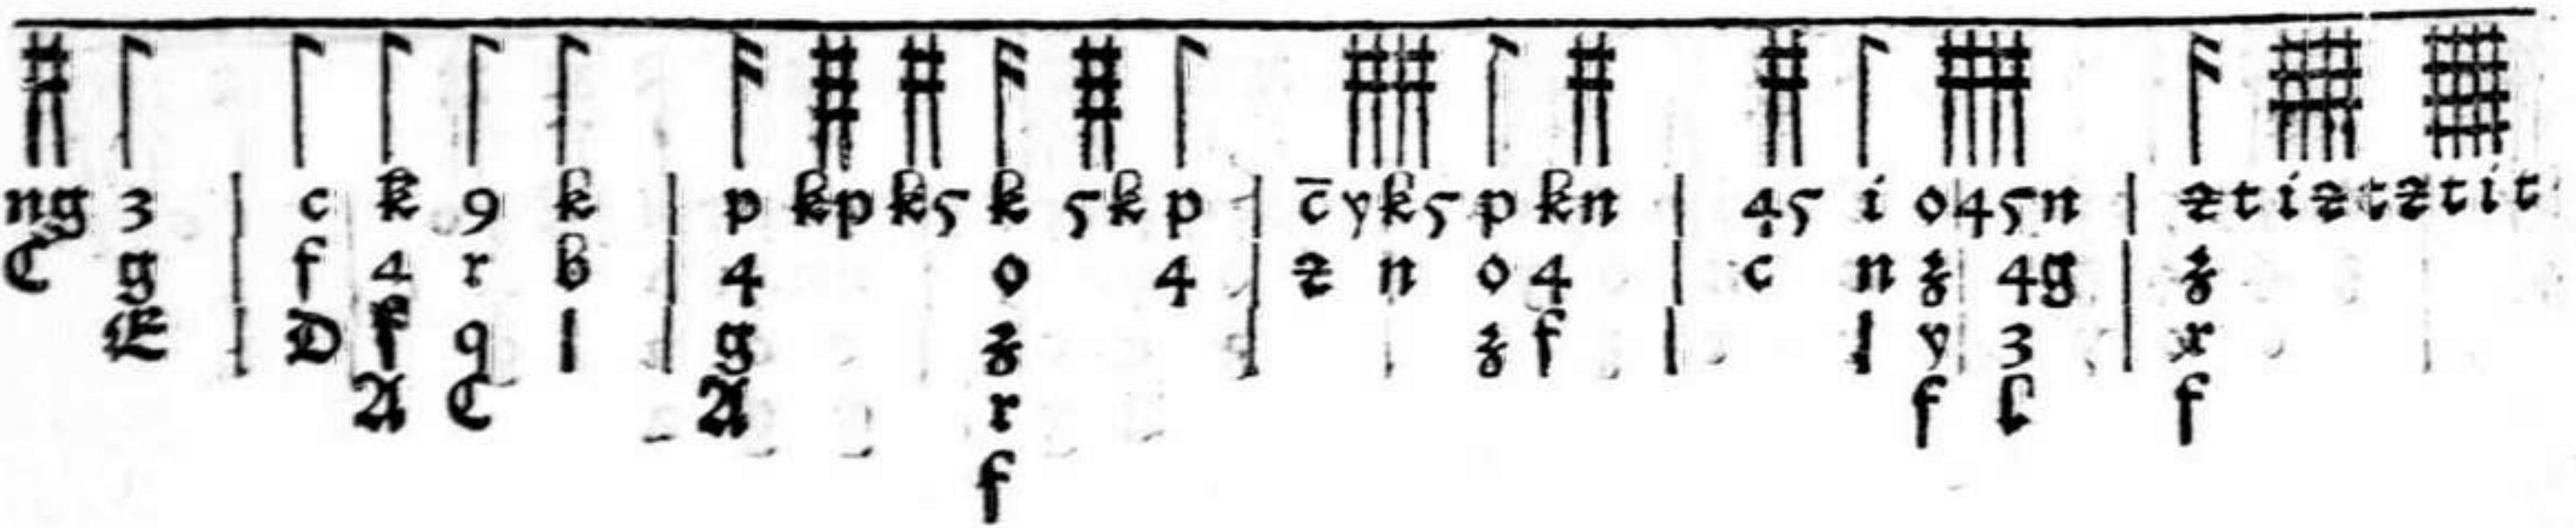 ng 3 | c k 9 k | p kp k5 k 5k p | c̄yk5 p kn | 45 i o45n | ztiztztit
C g | f 4 r B | 4 o 4 | z n o 4 | c n ʒ 4g | ʒ
E | D k q l | g ʒ | ʒ f | l y 3 | r
A C A r f f
f